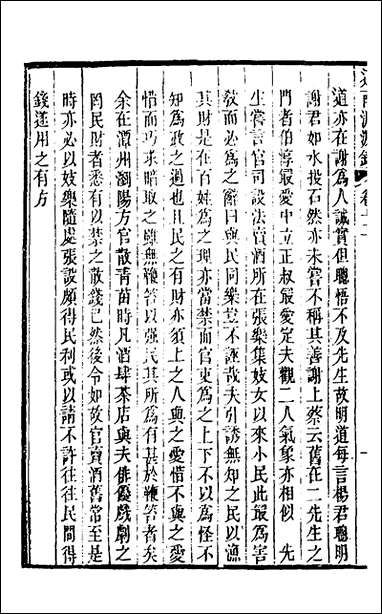 道亦在謝為人誠實但聰悟不及先生故明道每言楊君聰明
謝君如水投石然亦未嘗不稱其善謝上蔡云舊在二先生之
門者伯淳最愛中立正叔最愛定夫觀二人氣象亦相似 先
生嘗言官司設法賣酒所在張樂集妓女以來小民此最為害
教而必為之辭曰與民同樂豈不誣哉夫引誘無知之民以漁
其財是在百姓為之理亦當禁而官吏為之上下不以為怪不
知為政之過也且民之有財亦須上之人與之愛惜不與之愛
惜而巧求暗取之雖無鞭笞以强民其所為有甚於鞭笞者矣
余在潭州瀏陽方官散青苗時凡酒肆茶店與夫俳優戲劇之
罔民財者悉有以禁之散錢已然後令如故官賣酒舊常至是
時亦必以妓樂隨處張設頗得民利或以請不許往往民間得
錢遂用之有方